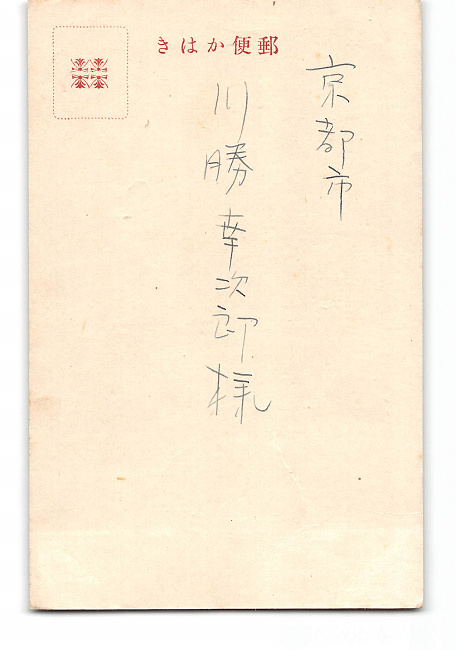 郵便かはき
京都市
川勝幸次郎様